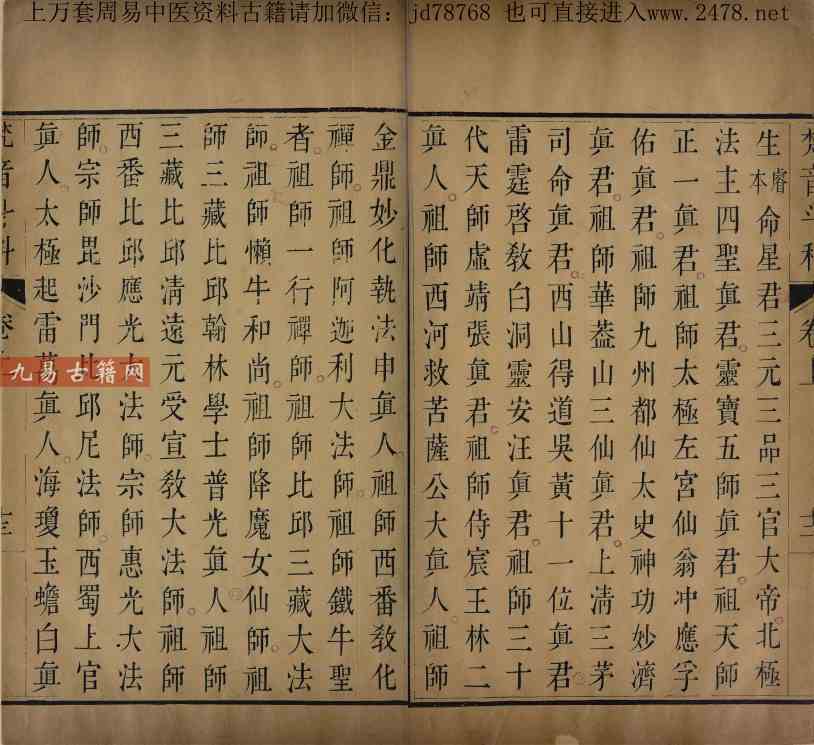 上万套周易中医资料古籍请加微信：jd78768 也可直接进入www.2478.net
生睿本命星君三元三品三官大帝北極
法主四聖眞君靈寶五師眞君祖天師
正一眞君祖師太極左宮仙翁冲應孚
佑眞君祖師九州都仙太史神功妙濟
眞君祖師華葢山三仙眞君上清三茅
司命眞君西山得道吳黃十一位眞君
雷霆啓敎白洞靈安汪眞君祖師三十
代天師虛靖張眞君祖師侍宸王林二
眞人祖師西河救苦薩公大眞人祖師
金鼎妙化執法申眞人祖師西番敎化
禪師祖師阿迦利大法師祖師鐵牛聖
者祖師一行禪師祖師比邱三藏大法
師祖師懶牛和尚祖師降魔女仙師祖
師三藏比邱翰林學士普光眞人祖師
三藏比邱淸遠元受宣敎大法師祖師
西番比邱應光大法師宗師惠光大法
師宗師毘沙門比邱尼法師西蜀上官
眞人太極起雷萬眞人海瓊玉蟾白眞
九易古籍网